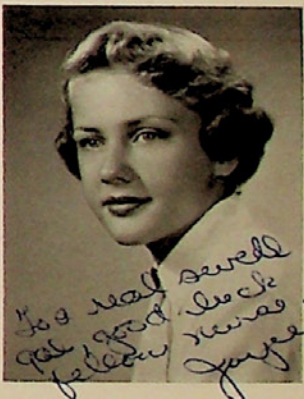 To a real swell
gal, good luck
fellow nurse
Joyce